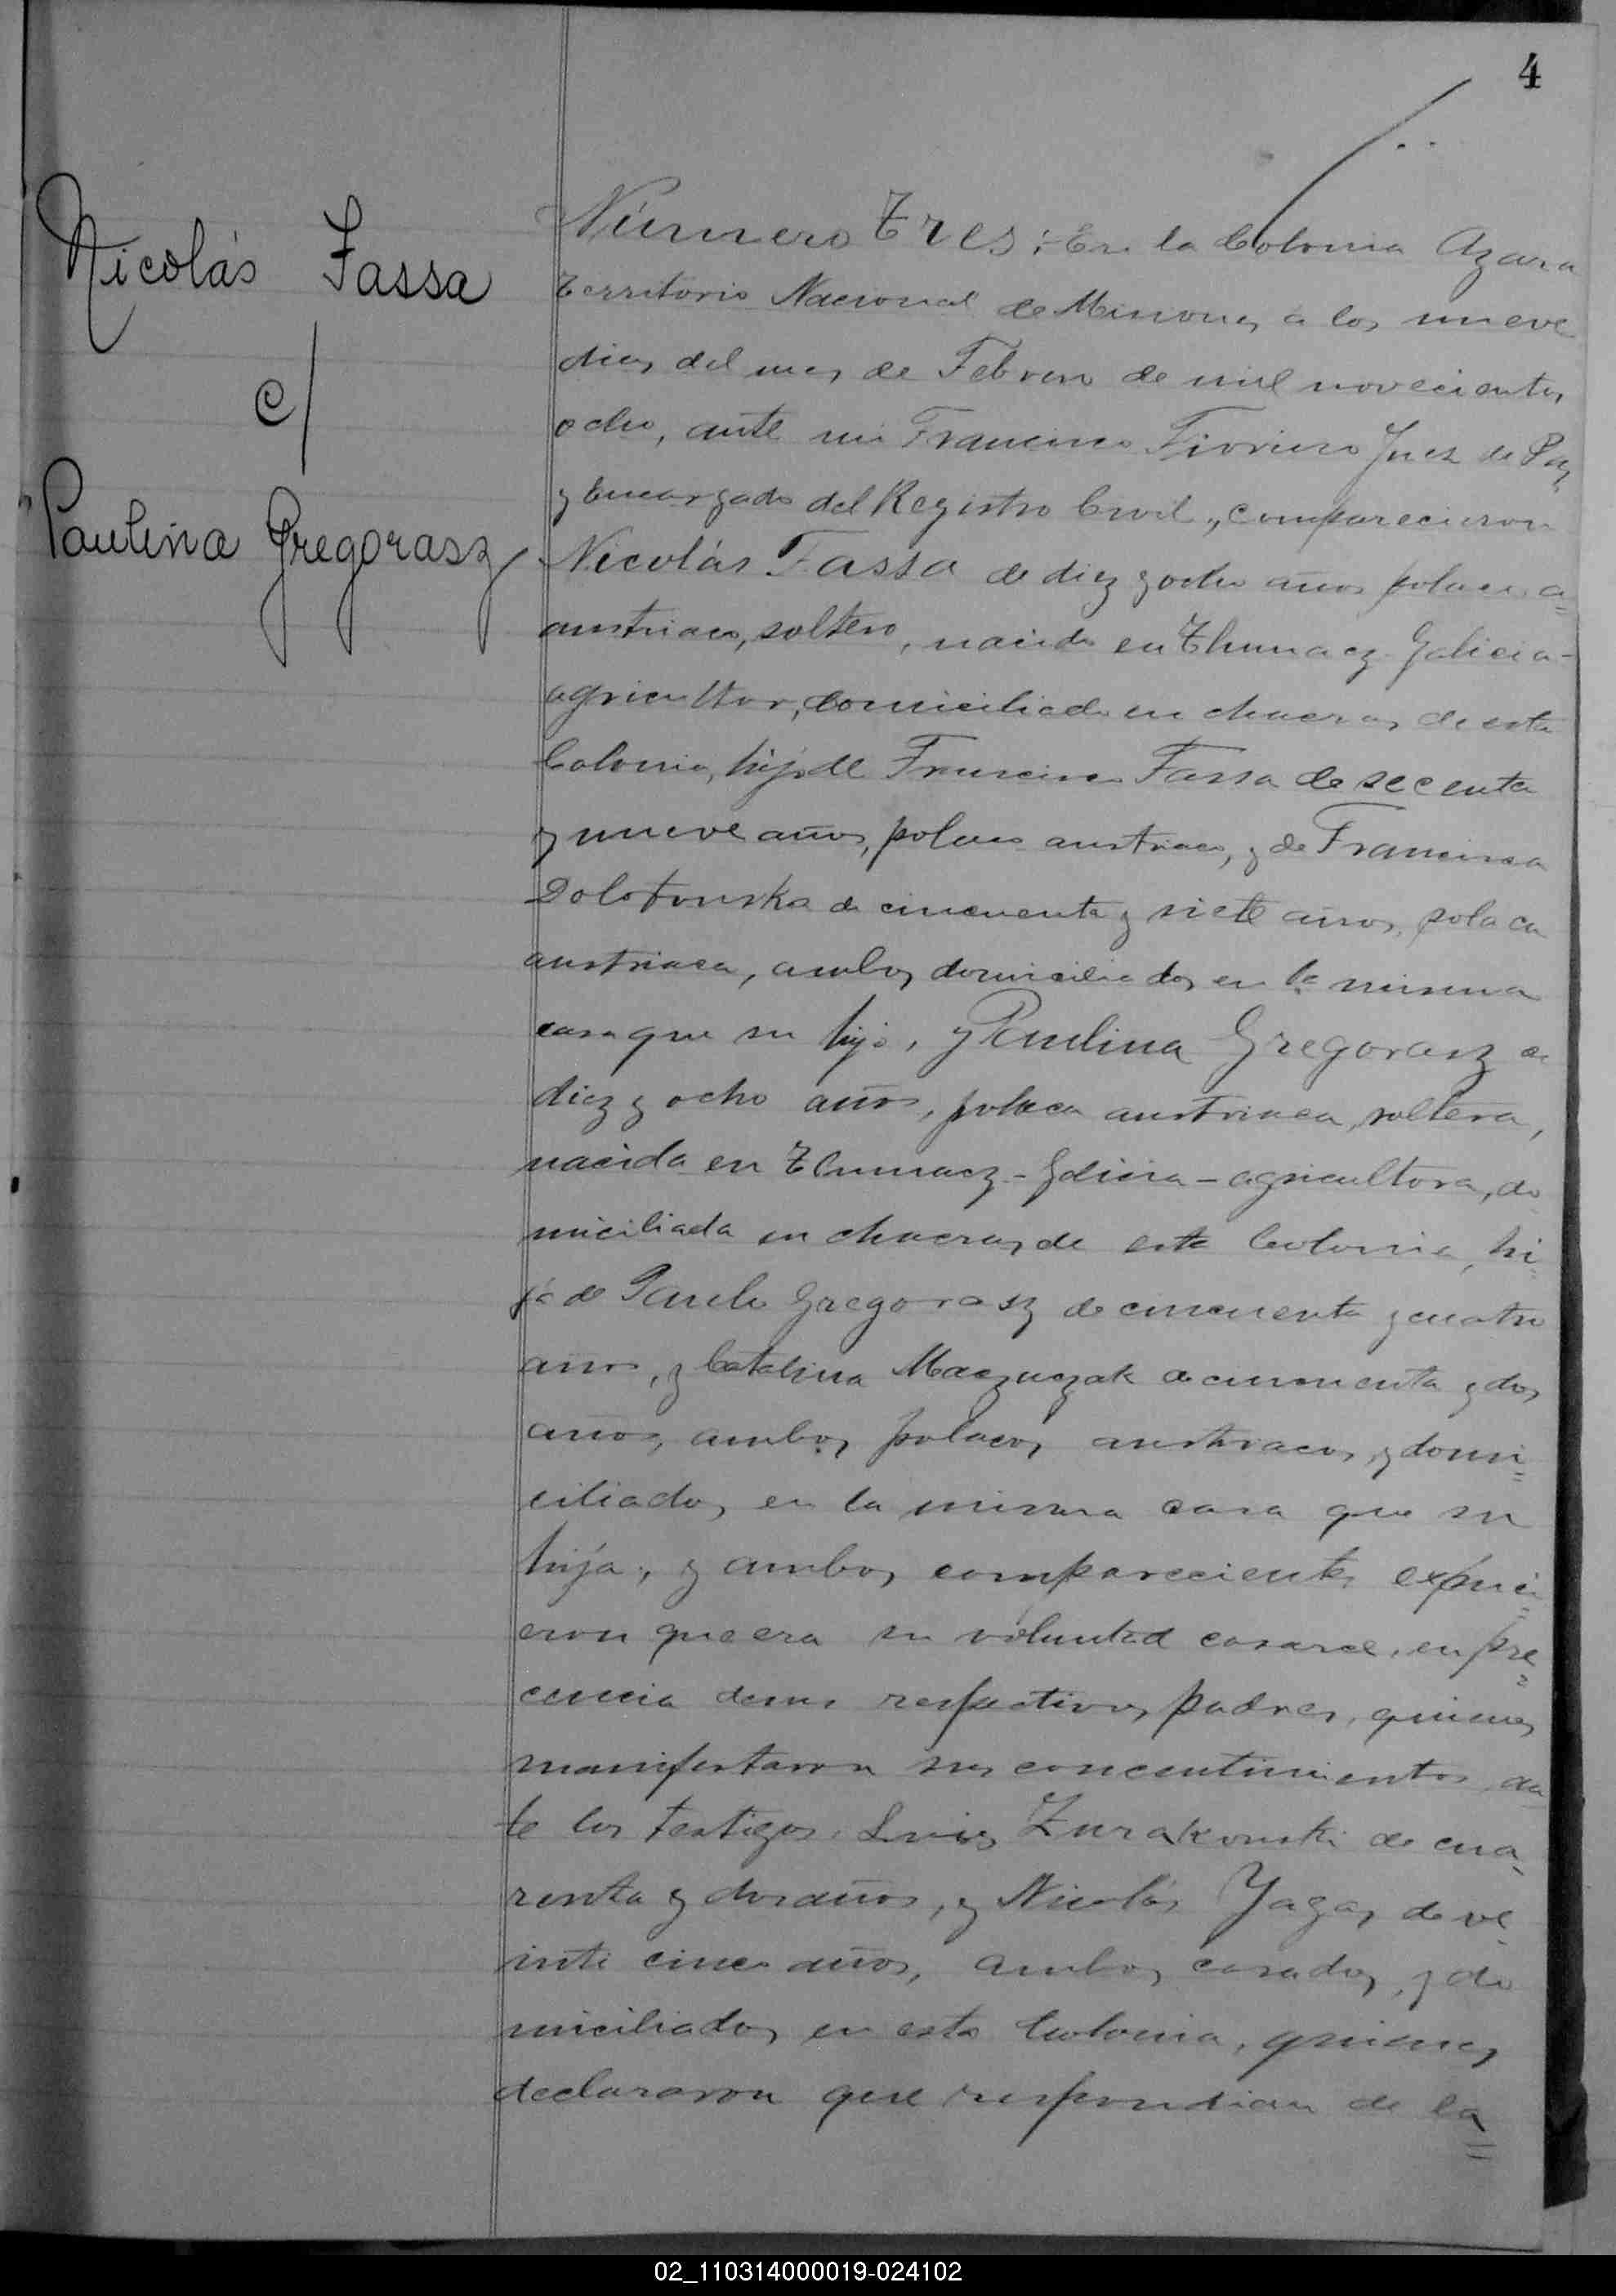 4
Nicolás Fassa
c/
Paulina Gregorasz
Número Tres: En la Colonia Azara
Territorio Nacional de Misiones, a los nueve
dias del mes de Febrero de mil novecientos
ocho, ante mi Francisco Juez de Paz
y Encargado del Registro Civil, comparecieron
Nicolás Fassa de diez y ocho años polaco a=
austriaco, soltero, nacido en Tlumacz Galicia-
agricultor, domiciliado en chacras de esta
Colonia, hijo de Francisco Fassa de secenta
y nueve años, polaco austriaco, y de Francisca
Dolotouska de cincuenta y siete años, polaca
austriaca, ambos domiciliados en la misma
casa que su hijo, y Paulina Gregorasz de
diez y ocho años, polaca austriaca, soltera,
nacida en Tlumacz - Galicia - agricultora, do
miciliada en chacras de esta Colonia, hi=
ja de Pawlo Gregorasz de cincuenta y cuatro
años, y Catalina Maczuczak de cincuenta y dos
años, ambos polacos austriacos, y domi=
ciliados en la misma casa que su
hija, y ambos comparecientes expuci=
eron que era su voluntad casarce, en pre=
cencia de sus respectivos padres, quienes
manifestaron sus concentimientos, an
te los testigos Luis Zurakouski de cua-
renta y dos años, y Nicolás Yagas de ve-
inti cinco años, ambos casados, y do
miciliados en esta Colonia, quienes
declararon que respondian de la=
02_110314000019-024102